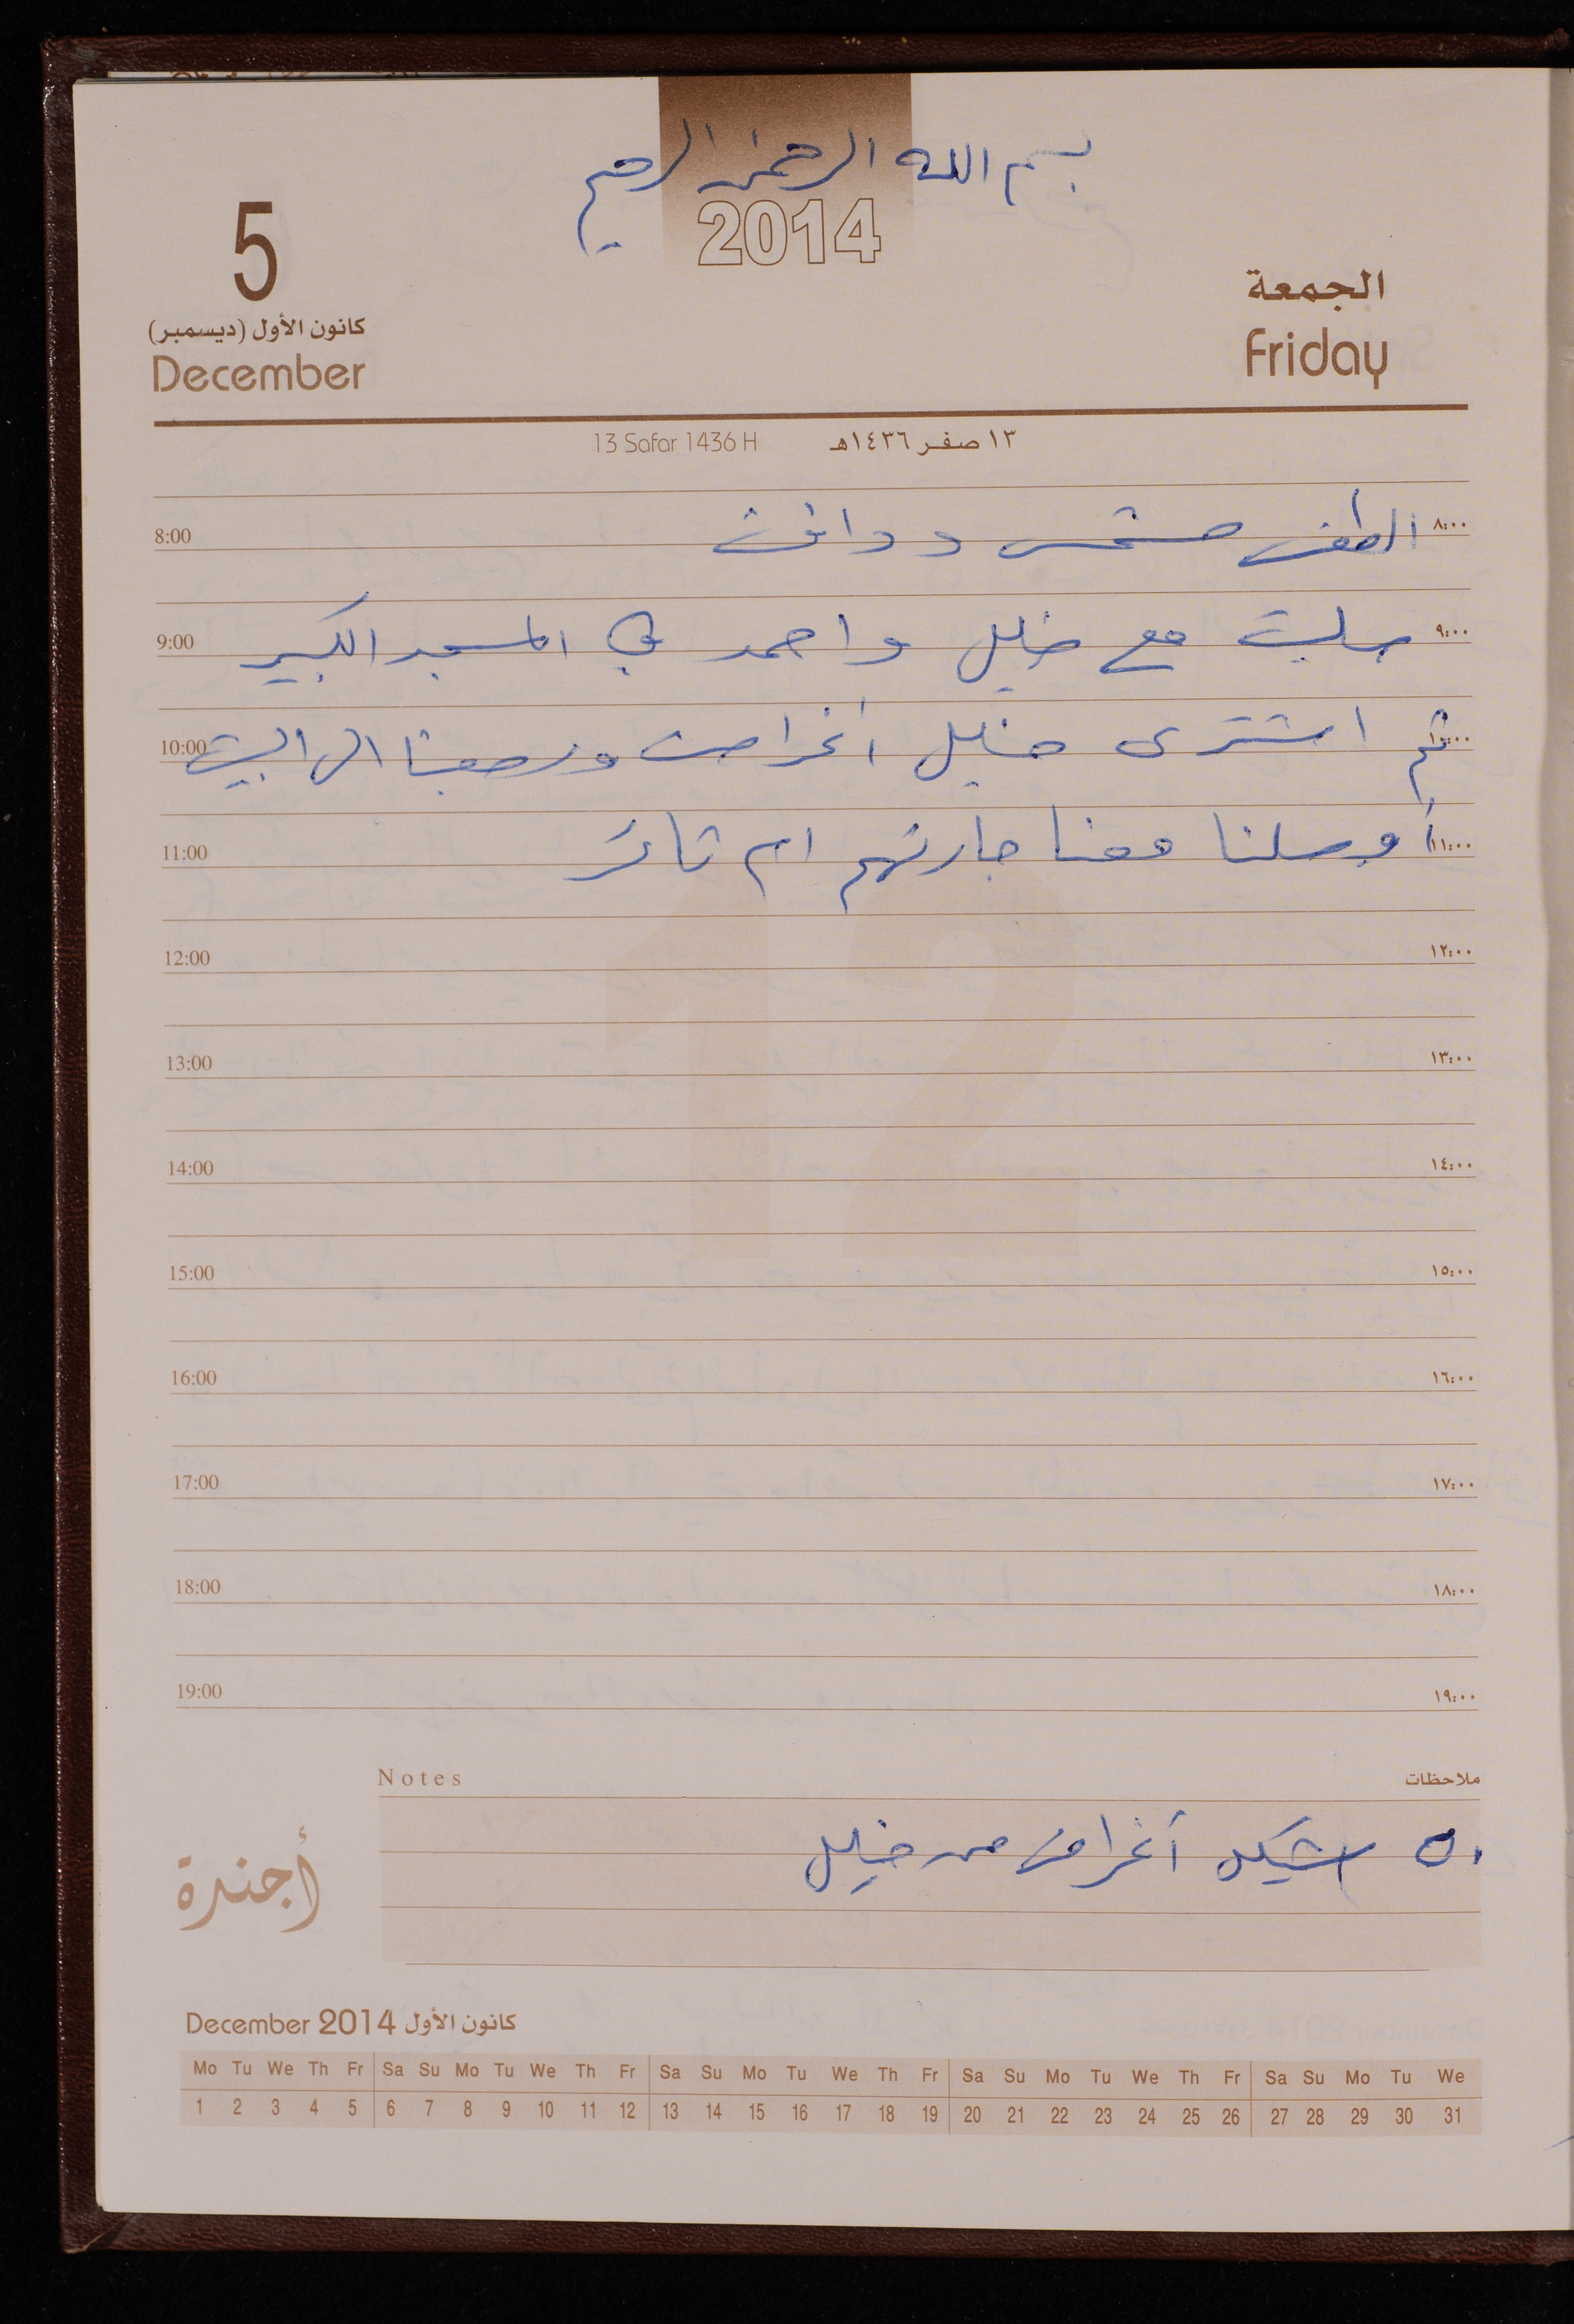 بسم الله الرحمن الرحيم
2014
5
كانون الأول (ديسمبر)
December
الجمعة
Friday
13 Safar 1436 H ١٣ صفر ١٤٣٦هـ
8:00 الطقس مشمس ودافئ ٨:٠٠
9:00 صليت مع خليل واحمد في المسجد الكبير ٩:٠٠
10:00 ثم اشترى خليل أغراض ورجعنا الى البيت ١٠:٠٠
11:00 أوصلنا معنا جارتهم ام ثائر ١١:٠٠
12:00 ١٢:٠٠
13:00 ١٣:٠٠
14:00 ١٤:٠٠
15:00 ١٥:٠٠
16:00 ١٦:٠٠
17:00 ١٧:٠٠
18:00 ١٨:٠٠
19:00 ١٩:٠٠
12
Notes ملاحظات
٥٠ شيكل أغراض من خليل
أجندة
December 2014 كانون الأول
Mo Tu We Th Fr Sa Su Mo Tu We Th Fr Sa Su Mo Tu We Th Fr Sa Su Mo Tu We Th Fr Sa Su Mo Tu We
1 2 3 4 5 6 7 8 9 10 11 12 13 14 15 16 17 18 19 20 21 22 23 24 25 26 27 28 29 30 31